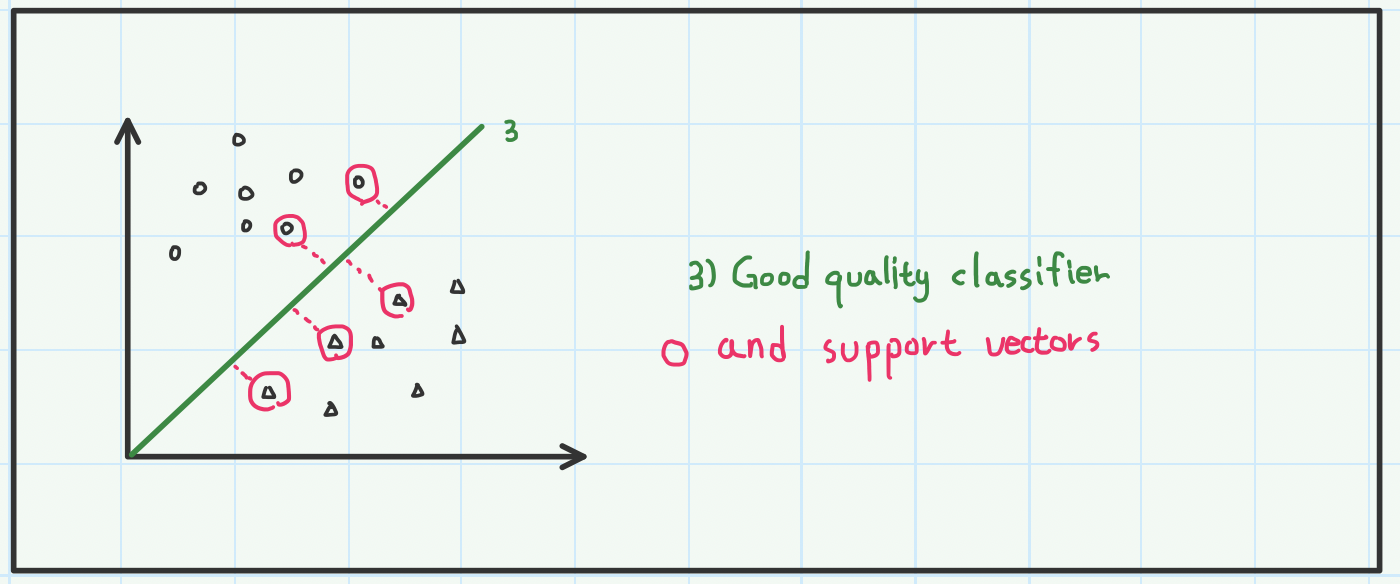 3
3) Good quality classifier
and support vectors